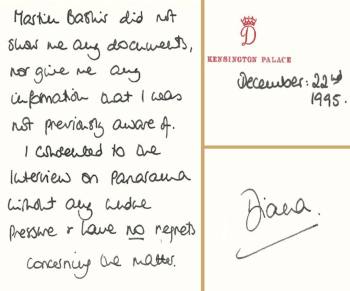 Martin Bashir did not
show me any documents,
nor give me any
information that I was
not previously aware of.
I consented to the
interview on Panarama
without any undue
pressure & have no regrets
concerning the matter.
D
KENSINGTON PALACE
December: 22nd
1995.
Diana.